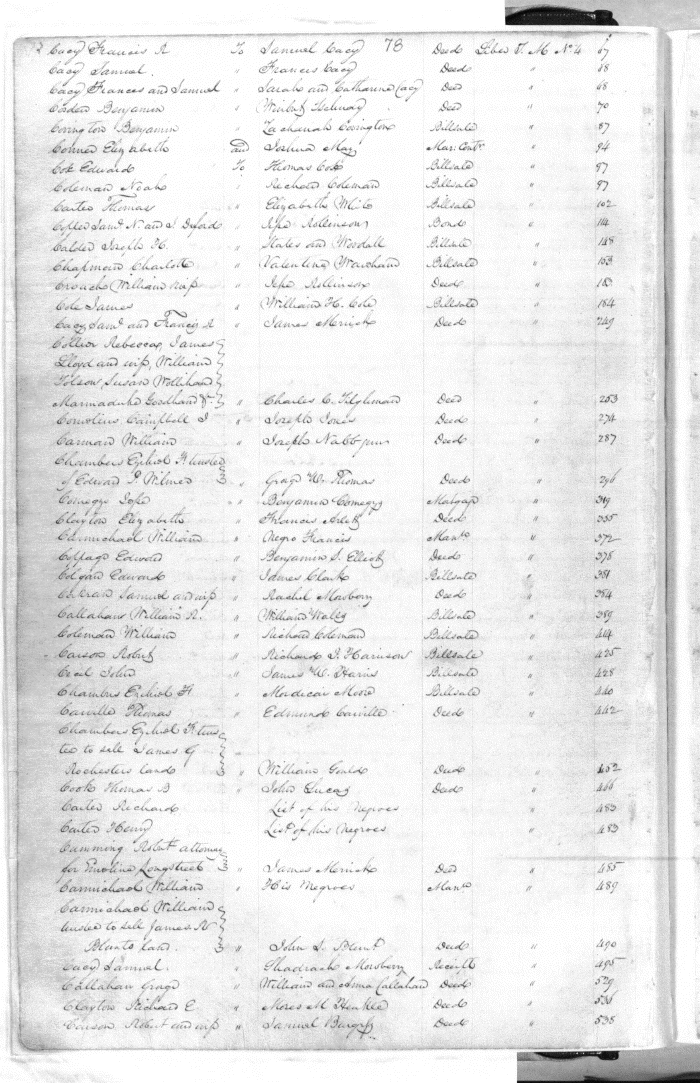 78
Cacy Francis R To Samuel Cacy Deed Liber T. M. No. 4 67
Cacy Samuel. " Frances Cacy Deed " 68
Cacy Frances and Samuel " Sarah and Catharine Cacy Deed " 68
Benjamin " Deed " 70
Covington Benjamin " Zachariah Covington Billsale " 87
Conner Elizabeth and Joshua May Mar: Contr " 94
Cox Edward To Thomas Cox Billsale " 97
Coleman Noah " Richard Coleman Billsale " 97
Carter Thomas " Elizabeth White Billsale " 102
Saml. N. and " Rollinson Bond " 114
Calder Joseph H. " States and Woodall Billsale " 148
Chapman Charlott " Valentine Billsale " 163
Crouch William " Rollinson Deed " 183
Cole James " William H. Cole Billsale " 184
Cacy Saml. and Francis R " James Merrick Deed " 249
Collier Rebecca, James
Lloyd and wife, William
Tolson, Susan
Marmaduke Goodhand &c. " Charles C. Tilghman Deed " 253
Cornelius Campbell I " Joseph Jones Deed " 274
Carman William " Joseph Deed " 287
Chambers Ezekiel F trustee
of Edward P. Wilmer " Grage W. Thomas Deed " 296
Comegys " Benjamin Comegys Mortgage " 319
Clayton Elizabeth " Frances Deed " 355
Carmichael William " Negro Francis Manu " 372
Edward " Benjamin S. Elliott Deed " 375
Edward " James Clark Billsale " 381
Samuel and wife " Rachel Mowbery Deed " 384
Callahan William R. " William Billsale " 389
Coleman William " Richard Coleman Billsale " 414
Carson Robert " Richard I. Harrison Billsale " 425
Cecil John " James W. Harris Billsale " 428
Chambers Ezekiel F " Mordicai Moore Billsale " 440
Carville Thomas " Edmund Carville Deed " 442
Chambers Ezekiel F trus
tee to sell James G "
Rochesters land " William Gould Deed " 452
Cook Thomas B " John Lucas Deed " 466
Carter Richard List of his Negroes " 483
Carter Henry List of his Negroes " 483
Cumming Robert attorney
for Longstreet " James Merrick Deed " 485
Carmichael William " His Negroes Manu " 489
Carmichael William
trustee to sell James W
Blunts land. " John S. Blunt Deed " 490
Cacy Samuel. " Shadrach Mowbery Receipt " 495
Callahan Grage " William and Anna Callahan Deed " 529
Clayton Richard E " Moses M. Deed " 530
Carson Robert and wife " Samuel Deed " 538